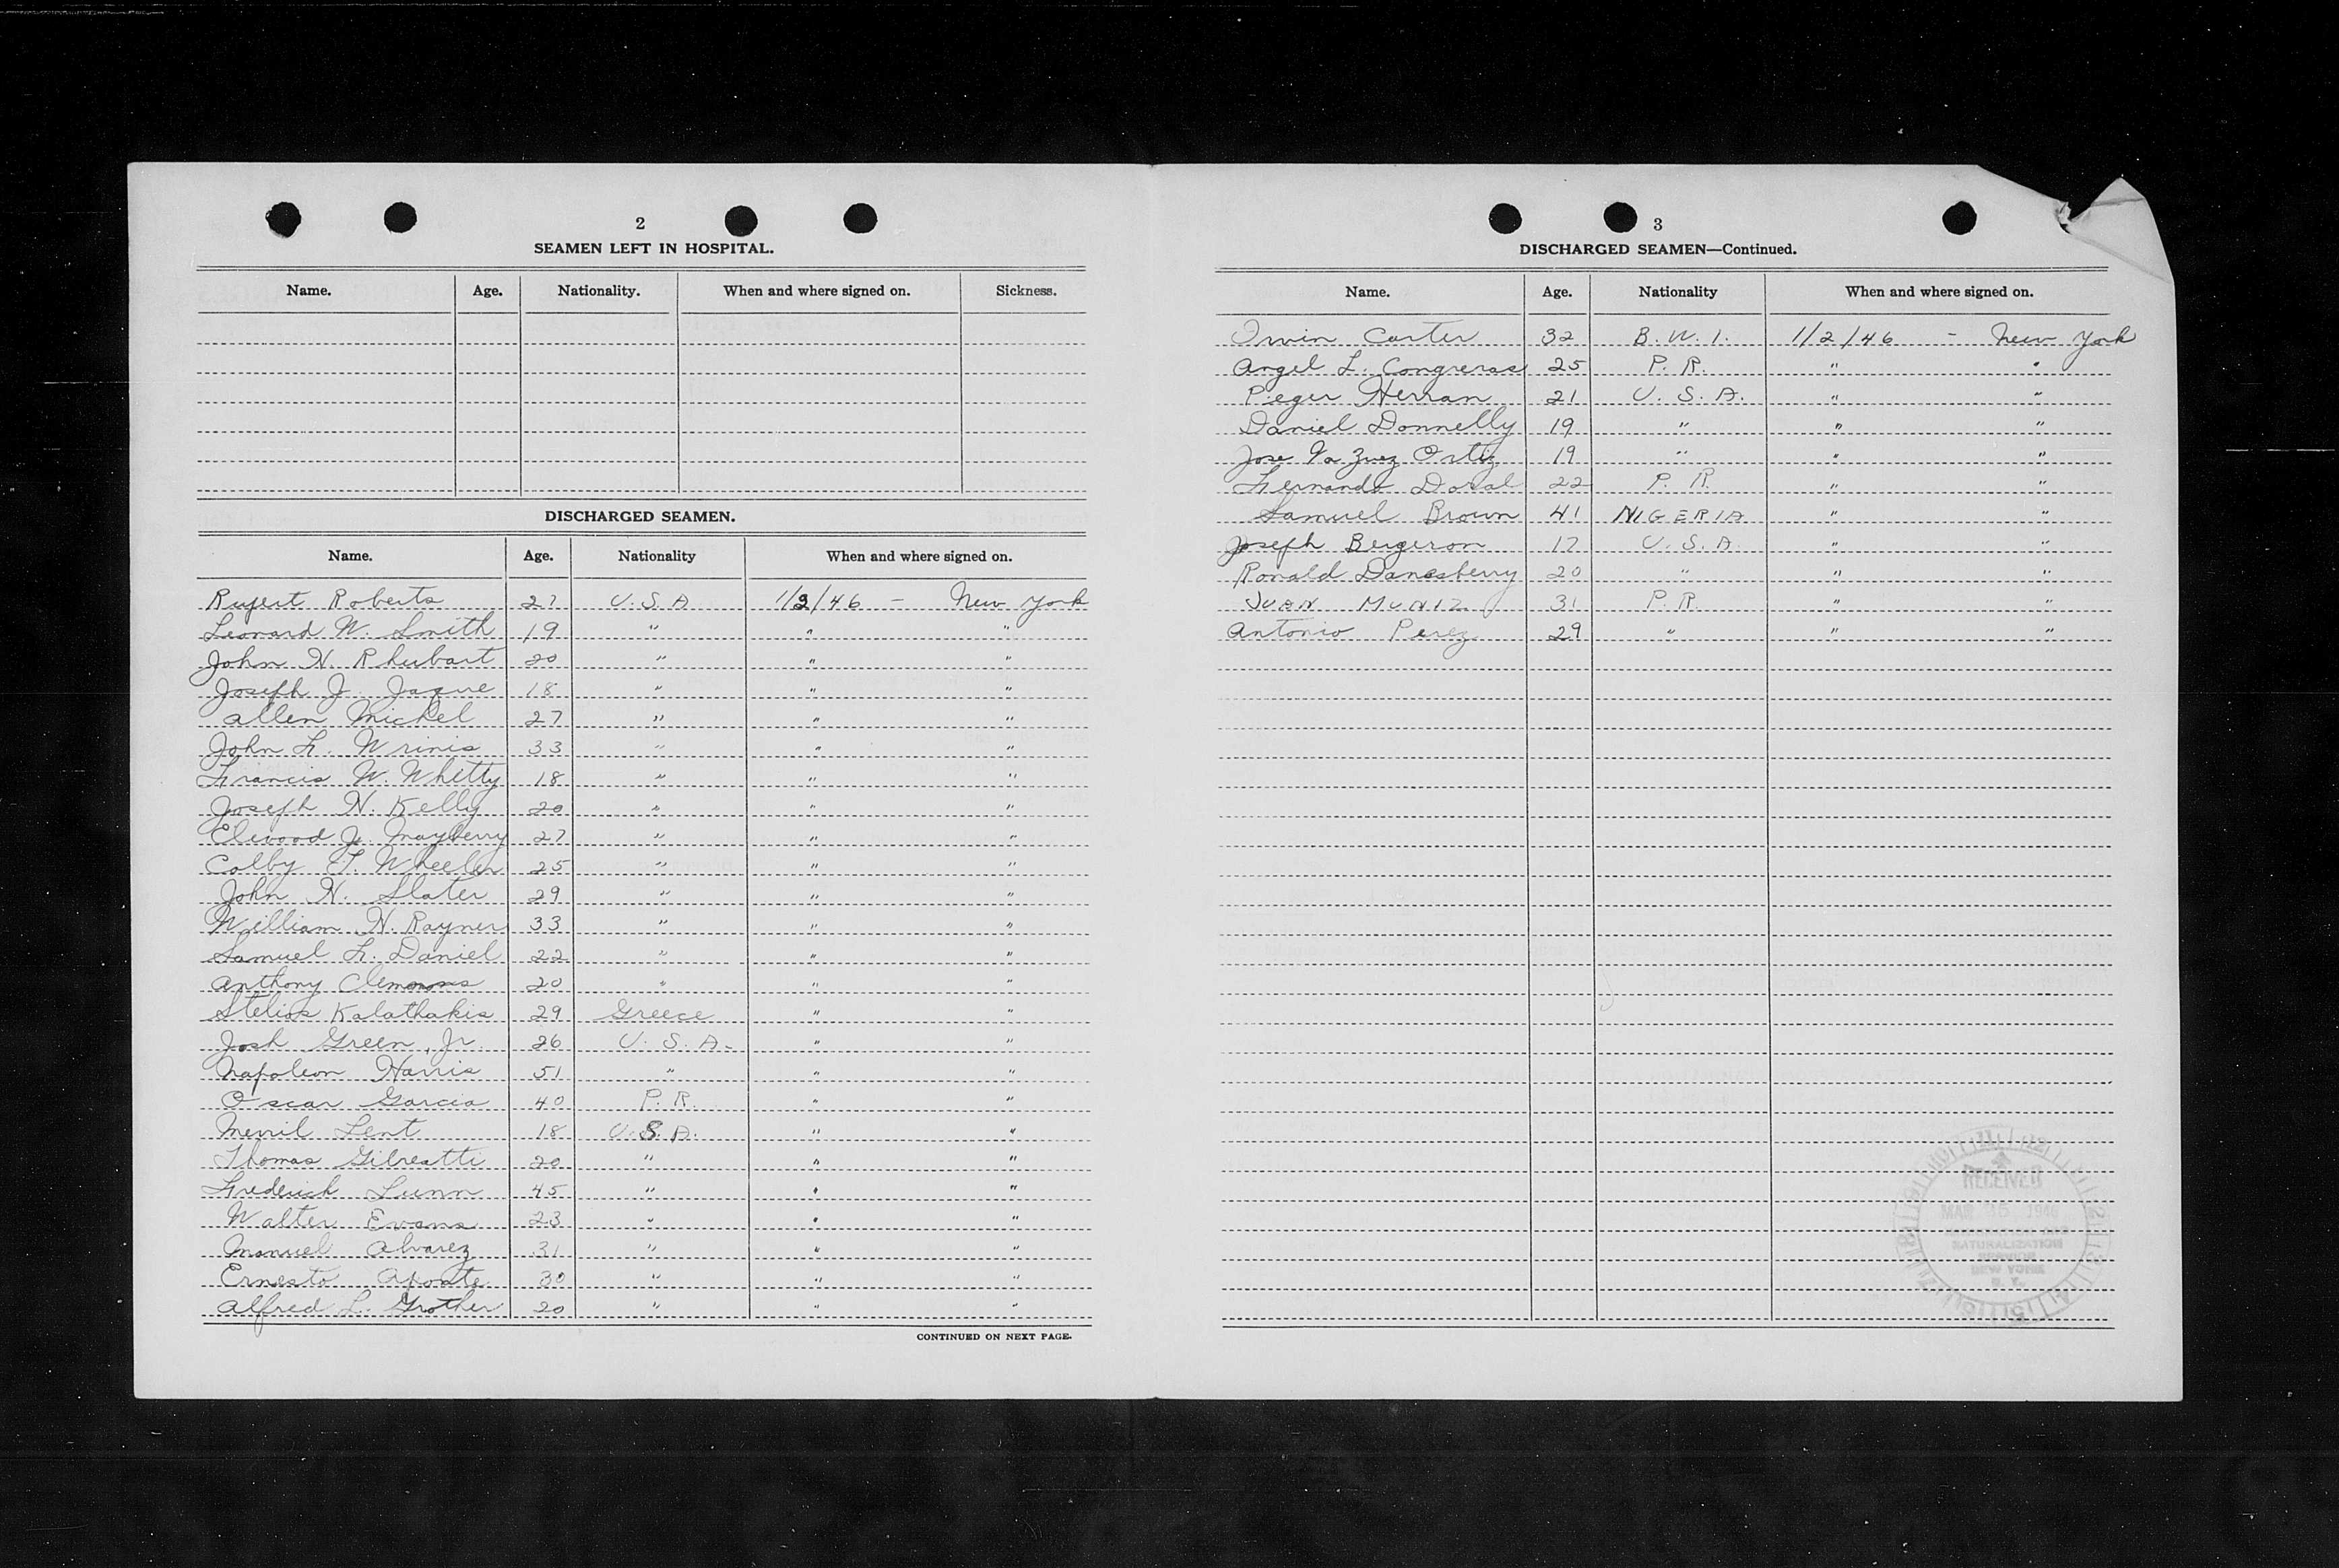 2
SEAMEN LEFT IN HOSPITAL.
Name. Age. Nationality. When and where signed on. Sickness.
DISCHARGED SEAMEN.
Name. Age. Nationality When and where signed on.
Rupert Roberts 27 U.S.A 1/2/46 - New York
Leonard W. Smith 19 " " "
John H. Rhubart 20 " " "
Joseph J. Jaque 18 " " "
Allen Michel 27 " " "
John L. Wrinis 33 " " "
Francis W. Whetty 18 " " "
Joseph H. Kelly 20 " " "
Elwood J. Mayberry 27 " " "
Colby F. Wheeler 25 " " "
John H. Slater 29 " " "
William H. Rayner 33 " " "
Samuel L. Daniel 22 " " "
Anthony Clemons 20 " " "
Stelios Kalathakis 29 Greece " "
Josh Green, Jr. 26 U.S.A. " "
Napoleon Harris 51 " " "
Oscar Garcia 40 P.R. " "
Merril Lent 18 U.S.A. " "
Thomas Gilreatti 20 " " "
Frederick Lunn 45 " " "
Walter Evans 23 " " "
Manuel Alvarez 31 " " "
Ernesto Aponte 30 " " "
Alfred L. Grother 20 " " "
CONTINUED ON NEXT PAGE.
3
DISCHARGED SEAMEN—Continued.
Name. Age. Nationality When and where signed on.
Orvin Carter 32 B.W.I. 1/2/46 - New York
Angel L. Congreras 25 P.R. " "
Pieger Herran 21 U.S.A. " "
Daniel Donnelly 19 " " "
Jose Vazquez Ortiz 19 " " "
Fernando Doral 22 P.R. " "
Samuel Brown 41 NIGERIA " "
Joseph Bergeron 17 U.S.A. " "
Ronald Danesberry 20 " " "
JUAN MUNIZ 31 P.R. " "
Antonio Perez 29 " " "
RECEIVED
MAR 1946
NATURALIZATION
SERVICE
NEW YORK
N. Y.